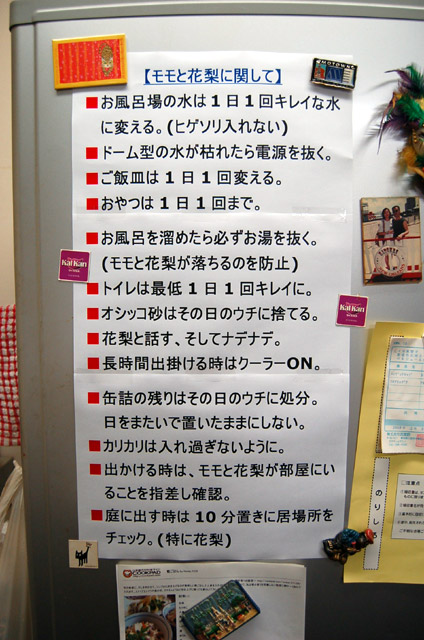 【モモと花梨に関して】
■お風呂場の水は1日1回キレイな水
に変える。(ヒゲソリ入れない)
■ドーム型の水が枯れたら電源を抜く。
■ご飯皿は1日1回変える。
■おやつは1日1回まで。
■お風呂を溜めたら必ずお湯を抜く。
(モモと花梨が落ちるのを防止)
■トイレは最低1日1回キレイに。
■オシッコ砂はその日のウチに捨てる。
■花梨と話す、そしてナデナデ。
■長時間出掛ける時はクーラーON。
■缶詰の残りはその日のウチに処分。
日をまたいで置いたままにしない。
■カリカリは入れ過ぎないように。
■出かける時は、モモと花梨が部屋にい
ることを指差し確認。
■庭に出す時は10分置きに居場所を
チェック。(特に花梨)
MOTOWN
KalKan
KalKan
のりしろ
注意点
COOKPAD